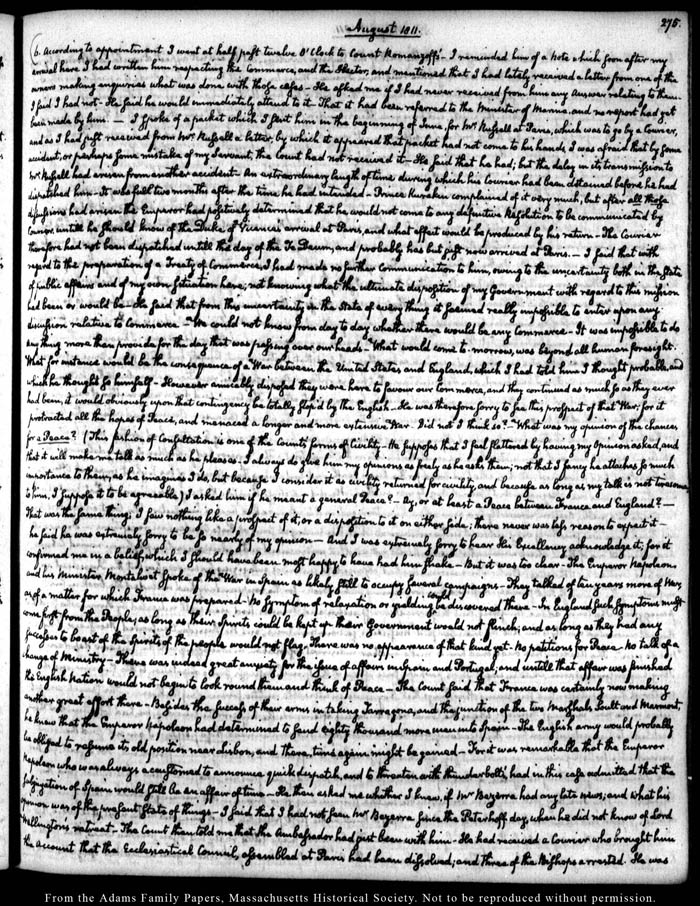 August 1811.
275.
6. According to appointment I went at half past twelve O'Clock to Count Romanzoff's. I reminded him of a Note which soon after my
arrival here I had written him respecting the Commerce, and the Hector; and mentioned that I had lately received a letter from one of the
owners making enquiries what was done with those cases — He asked me if I had never received from him any answer relating to them.
I said I had not — He said he would immediately attend to it. That it had been referred to the Minister of Marine, and no report had yet
been made by him. — I spoke of a packet which I sent him in the beginning of June, for Mr Russell at Paris, which was to go by a Courier,
and as I had just received from Mr Russell a letter, by which it appeared that packet had not come to his hands, I was afraid that by some
accident, or perhaps some mistake of my Servant, the Count had not received it — He said that he had; but the delay in its transmission to
Mr Russell had arisen from another accident. An extraordinary length of time during which his Courier had been detained before he had
dispatched him. It was full two months after the time he had intended. Prince Kurakin complained of it very much, but after all those
discussions had arisen the Emperor had positively determined that he would not come to any definitive Resolution to be communicated by
Courier untill he should know of the Duke of Vicence's arrival at Paris, and what effect would be produced by his return — The Courier
therefore had not been dispatched untill the day of the Te Deum, and probably has but just now arrived at Paris. — I said that with
regard to the preparation of a Treaty of Commerce, I had made no further Communication to him, owing to the uncertainty both in the State
of public affairs and of my own situation here; not knowing what the ultimate disposition of my Government with regard to this mission
had been or would be — He said that from the uncertainty in the State of every thing it seemed really impossible to enter upon any
discussion relative to Commerce. "We could not know from day to day whether there would be any Commerce — It was impossible to do
any thing more than provide for the day that was passing over our heads — "What would come to-morrow, was beyond all human foresight.
What for instance would be the consequence of a War between the United States and England, which I had told him I thought probable, and
which he thought so himself — However amicably disposed they were here to favour our Commerce, and they continued as much so as they ever
had been, it would obviously upon that contingency be totally stop'd by the English — He was therefore sorry to see this prospect of that War: for it
protracted all the hopes of Peace, and menaced a longer and more extensive War. Did not I think so? — What was my opinion of the chances
for a Peace? (This fashion of Consultation is one of the Count's forms of Civility — He supposes that I feel flattered by having my Opinion asked, and
that it will make me talk as much as he pleases. I always do give him my opinions as freely as he asks them; not that I fancy he attaches so much
importance to them, as he imagines I do, but because I consider it as civility returned for civility, and because as long as my talk is not tiresome
to him, I suppose it to be agreeable) I asked him if he meant a general Peace? — Ay, or at least a Peace between France and England? —
That was the same thing; I saw nothing like a prospect of it, or a disposition to it on either side; there never was less reason to expect it —
he said he was extremely sorry to be so nearly of my opinion — And I was extremely sorry to hear His Excellency acknowledge it; for it
confirmed me in a belief, which I should have been most happy to have had him shake — But it was too clear — The Emperor Napoleon
and his Minister Montalivet spoke of the War in Spain as likely still to occupy several campaigns — They talked of ten years more of War,
as of a matter for which France was prepared — No Symptom of relaxation or yielding could be discovered there — In England such Symptoms might
come first from the People; as long as their Spirits could be kept up their Government would not flinch; and as long as they had any
success to boast of the Spirits of the people would not flag. There was no appearance of that kind yet. No petitions for Peace — No talk of a
change of Ministry — There was indeed great anxiety for the issue of affairs in Spain and Portugal, and untill that affair was finished
the English Nation would not begin to look round them and think of Peace — The Count said that France was certainly now making
another great effort there — Besides the success of their arms in taking Tarragona, and the junction of the two Marshals Soult and Marmont,
he knew that the Emperor Napoleon had determined to send eighty thousand more men into Spain — The English army would probably
be obliged to resume its old position near Lisbon, and there, time again might be gained — For it was remarkable that the Emperor
Napoleon who was always accustomed to announce quick dispatch, and to threaten with thunderbolts, had in this case admitted that the
subjugation of Spain would still be an affair of time — He then asked me whether I knew, if Mr Bezerra had any late news; and what his
opinion was of the present State of things — I said that I had not seen Mr Bezerra since the Peterhoff day, when he did not know of Lord
Wellington's retreat. The Count then told me that the Ambassador had just been with him — He had received a Courier who brought him
the account that the Ecclesiastical Council, assembled at Paris had been dissolved; and three of the Bishops arrested. He was
From the Adams Family Papers, Massachusetts Historical Society. Not to be reproduced without permission.